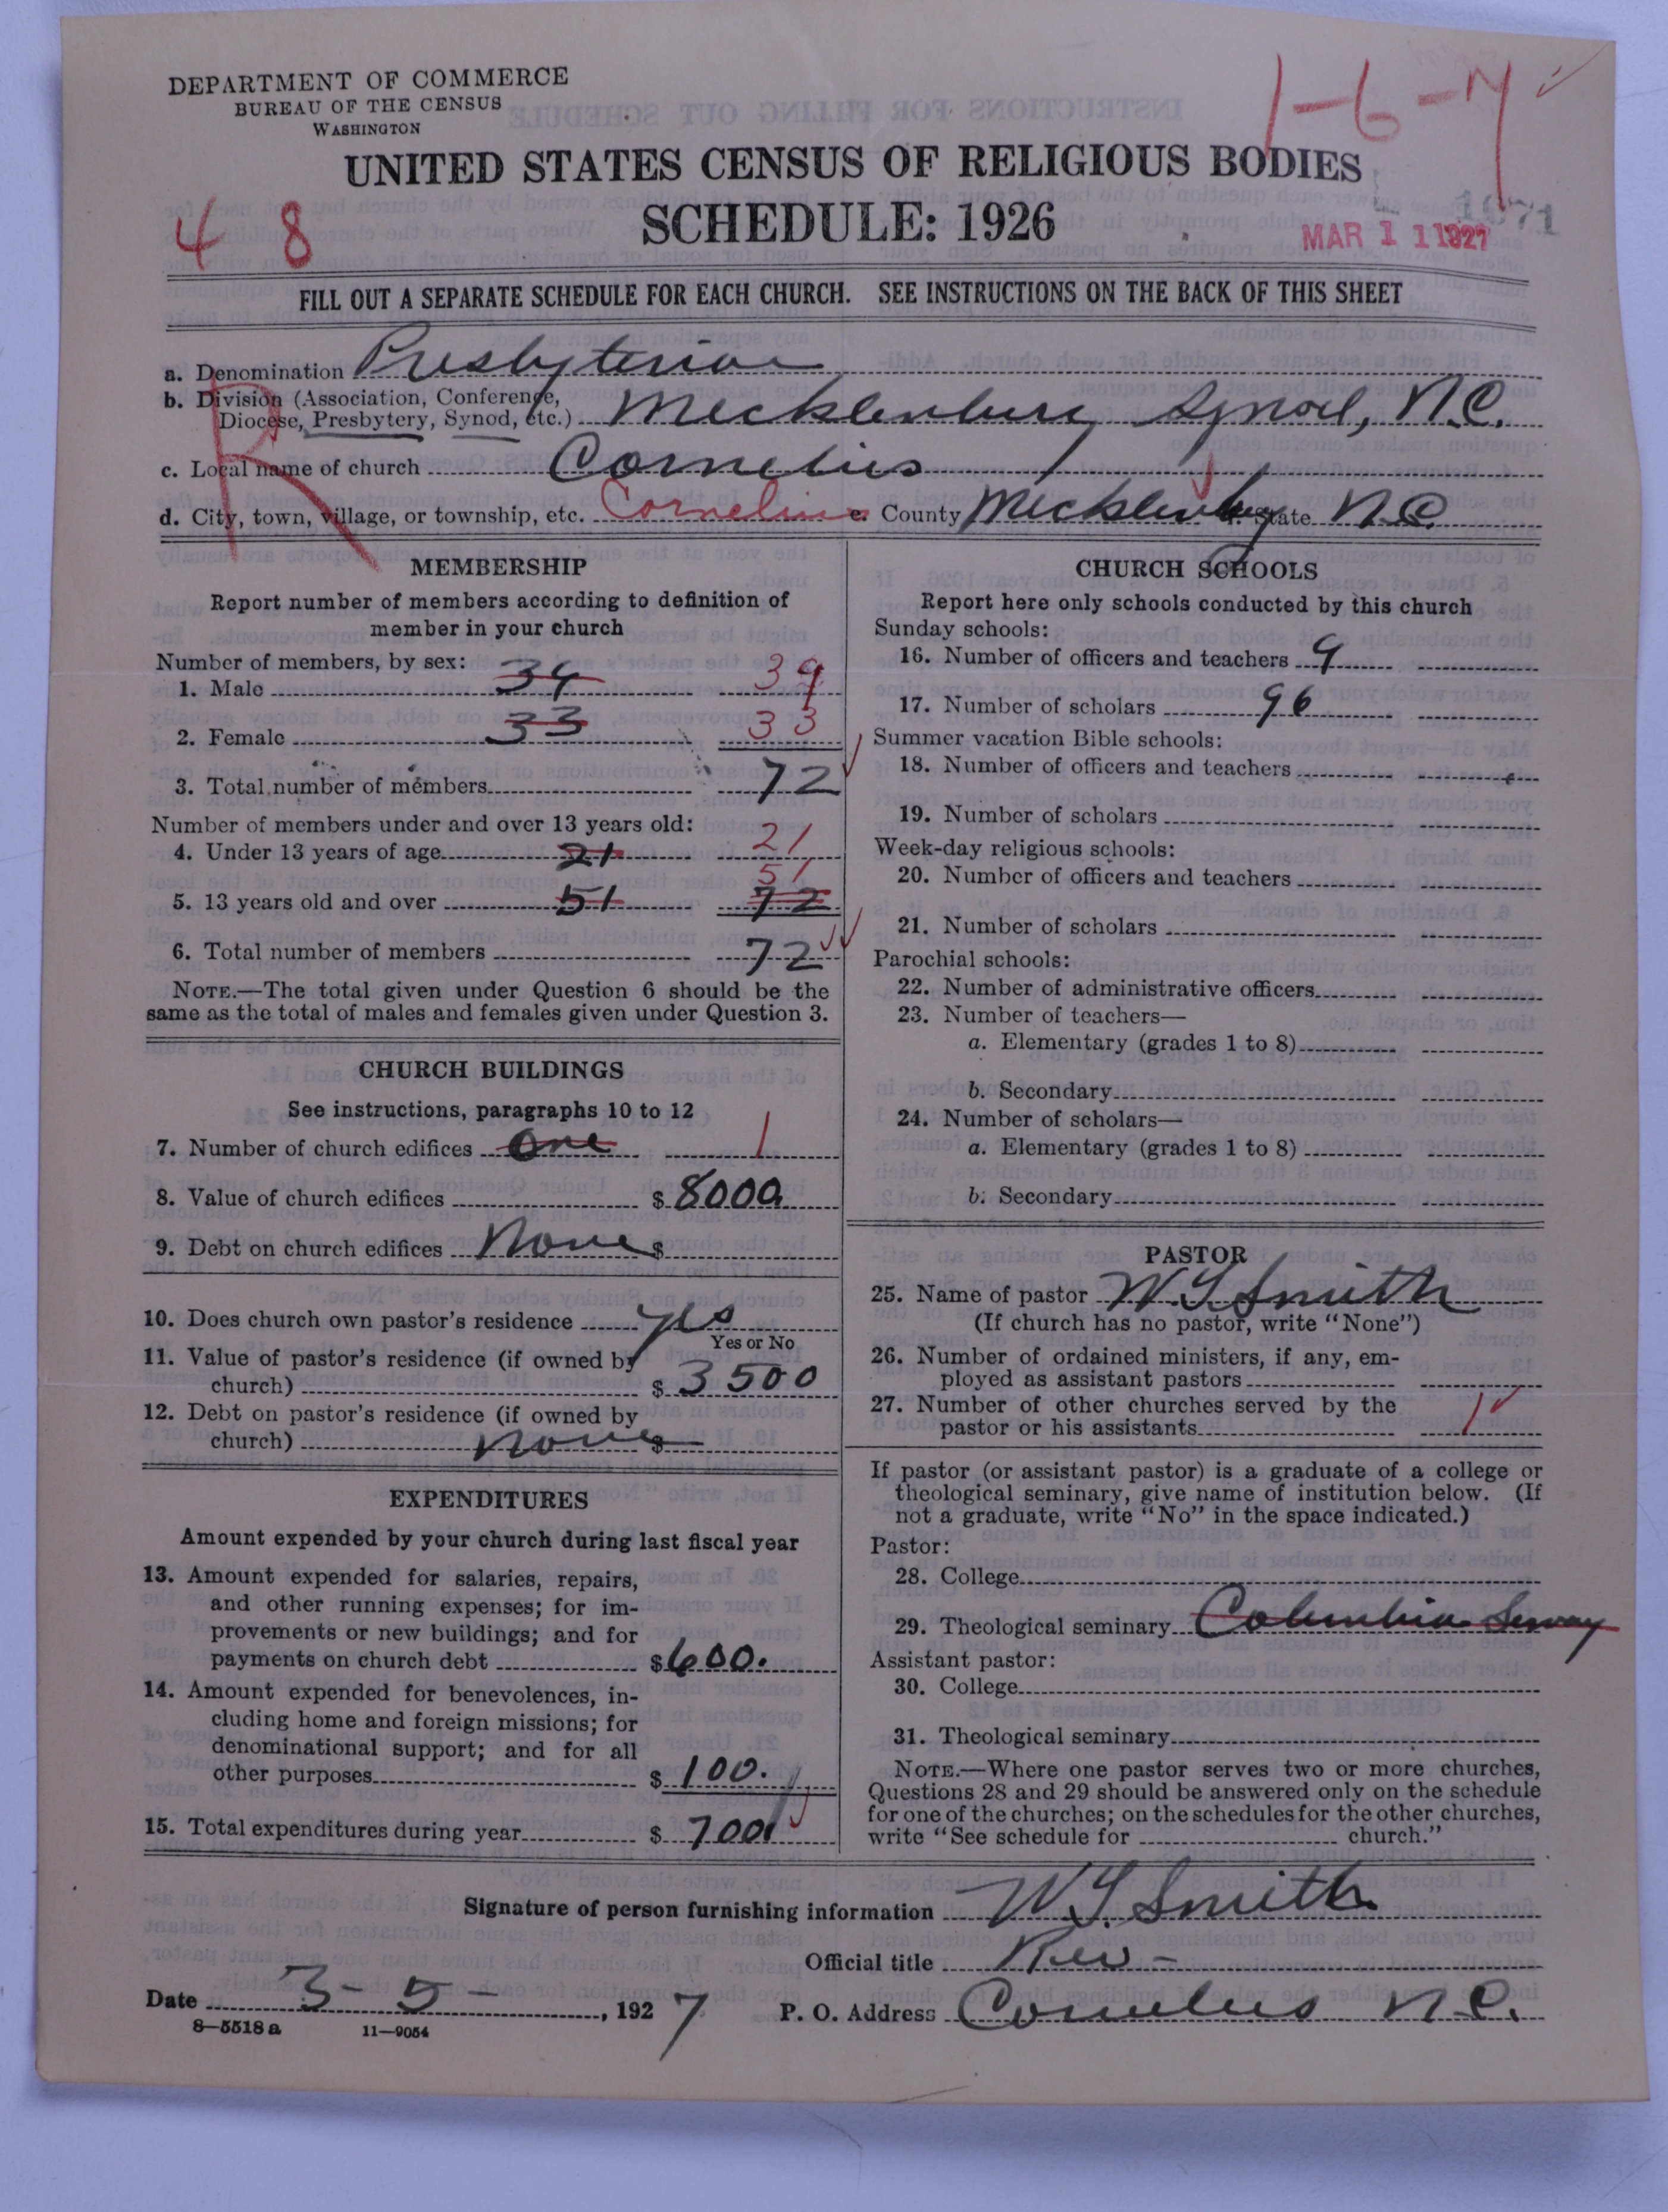 DEPARTMENT OF COMMERCE
BUREAU OF THE CENSUS
WASHINGTON
1-6-
UNITED STATES CENSUS OF RELIGIOUS BODIES
SCHEDULE: 1926
4 8
MAR 1 1 1927
FILL OUT A SEPARATE SCHEDULE FOR EACH CHURCH. SEE INSTRUCTIONS ON THE BACK OF THIS SHEET
a. Denomination Presbyterian
b. Division (Association, Conference,
Diocese, Presbytery, Synod, etc.) Mecklenburg Synod, N.C.
c. Local name of church Cornelius
d. City, town, village, or township, etc. Cornelius e. County Mecklenburg f. State N.C.
R
MEMBERSHIP
Report number of members according to definition of
member in your church
Number of members, by sex:
1. Male 39 39
2. Female 33 33
3. Total number of members 72
Number of members under and over 13 years old:
4. Under 13 years of age 21 21
5. 13 years old and over 51 72 51
6. Total number of members 72
NOTE.—The total given under Question 6 should be the
same as the total of males and females given under Question 3.
CHURCH BUILDINGS
See instructions, paragraphs 10 to 12
7. Number of church edifices One 1
8. Value of church edifices $ 8000
9. Debt on church edifices None $
10. Does church own pastor's residence yes
Yes or No
11. Value of pastor's residence (if owned by
church) $ 3500
12. Debt on pastor's residence (if owned by
church) None $
EXPENDITURES
Amount expended by your church during last fiscal year
13. Amount expended for salaries, repairs,
and other running expenses; for im-
provements or new buildings; and for
payments on church debt $ 600.
14. Amount expended for benevolences, in-
cluding home and foreign missions; for
denominational support; and for all
other purposes $ 100.
15. Total expenditures during year $ 700
CHURCH SCHOOLS
Report here only schools conducted by this church
Sunday schools:
16. Number of officers and teachers 9
17. Number of scholars 96
Summer vacation Bible schools:
18. Number of officers and teachers
19. Number of scholars
Week-day religious schools:
20. Number of officers and teachers
21. Number of scholars
Parochial schools:
22. Number of administrative officers
23. Number of teachers—
a. Elementary (grades 1 to 8)
b. Secondary
24. Number of scholars—
a. Elementary (grades 1 to 8)
b. Secondary
PASTOR
25. Name of pastor W. Y. Smith
(If church has no pastor, write "None")
26. Number of ordained ministers, if any, em-
ployed as assistant pastors
27. Number of other churches served by the
pastor or his assistants 1
If pastor (or assistant pastor) is a graduate of a college or
theological seminary, give name of institution below. (If
not a graduate, write "No" in the space indicated.)
Pastor:
28. College
29. Theological seminary Columbia
Assistant pastor:
30. College
31. Theological seminary
NOTE.—Where one pastor serves two or more churches,
Questions 28 and 29 should be answered only on the schedule
for one of the churches; on the schedules for the other churches,
write "See schedule for church."
Signature of person furnishing information W. Y. Smith
Official title Rev-
Date 3-5-, 1927 P. O. Address Cornelius N.C.
8—5518 a 11—9054